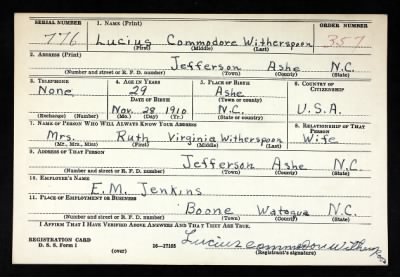 SERIAL NUMBER 1. NAME (Print) ORDER NUMBER
776 Lucius Commodore Witherspoon 357
(First) (Middle) (Last)
2. ADDRESS (Print)
Jefferson Ashe N.C.
(Number and street or R. F. D. number) (Town) (County) (State)
3. TELEPHONE 4. AGE IN YEARS 5. PLACE OF BIRTH 6. COUNTRY OF CITIZENSHIP
None 29 Ashe
DATE OF BIRTH (Town or county)
Nov. 28 1910 N.C. U.S.A.
(Exchange) (Number) (Mo.) (Day) (Yr.) (State or country)
7. NAME OF PERSON WHO WILL ALWAYS KNOW YOUR ADDRESS 8. RELATIONSHIP OF THAT PERSON
Mrs. Ruth Virginia Witherspoon Wife
(Mr., Mrs., Miss) (First) (Middle) (Last)
9. ADDRESS OF THAT PERSON
Jefferson Ashe N.C.
(Number and street or R. F. D. number) (Town) (County) (State)
10. EMPLOYER'S NAME
E.M. Jenkins
11. PLACE OF EMPLOYMENT OR BUSINESS
Boone Watogua N.C.
(Number and street or R. F. D. number) (Town) (County) (State)
I AFFIRM THAT I HAVE VERIFIED ABOVE ANSWERS AND THAT THEY ARE TRUE.
REGISTRATION CARD
D. S. S. Form 1 (over) 16—17105 Lucius Commodore Witherspoon
(Registrant's signature)